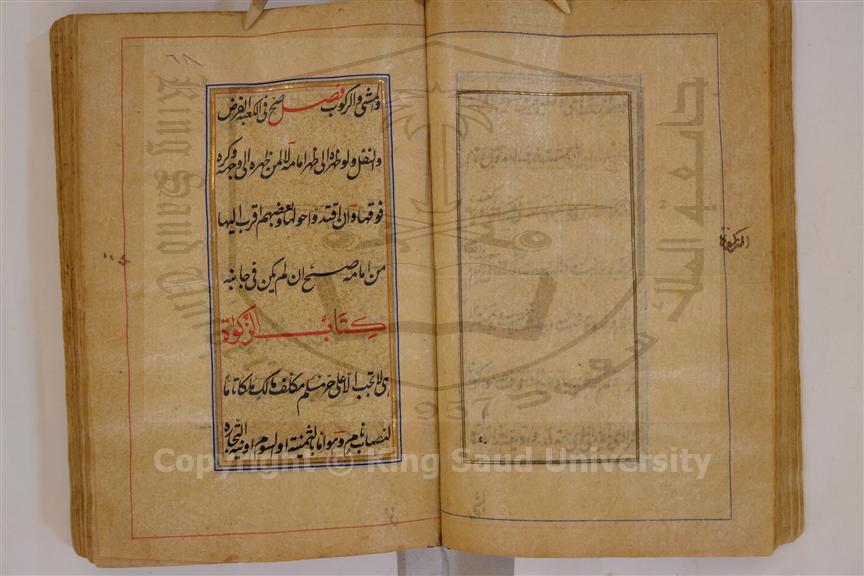 والمشي والركوب فصل صح في الكعبة الفرض
والنفل ولو ظهره الى ظهر امامه لا لمن ظهره الى وجهه وكره
فوقها وان اقتدوا حولها وبعضهم اقرب اليها
من امامه صح ان لم يكن في جانبه
كتاب الزكوة
هي لا تجب الا على حر مسلم مكلف مالك ملكا تاما
لنصاب نام وهو اما بالثمنية او السوم او نية التجاره
King Saud University
جامعة الملك سعود
1957
Copyright © King Saud University